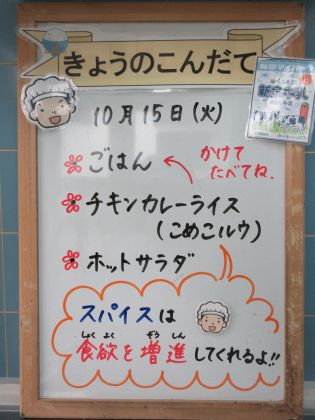 きょうのこんだて
10月15日(火)
ごはん
かけて
たべてね.
チキンカレーライス
(こめこルウ)
ホットサラダ
スパイスは
しょく よく ぞう しん
食欲を増進してくれるよ!!